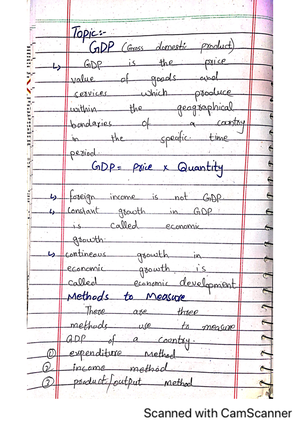 Topic:-
GDP (Gross domestic product)
↳ GDP is the price
value of goods and
services which produce
within the geographical
bondaries of a country
in the specfic time
period.
GDP = Price × Quantity
↳ foreign income is not GDP
↳ constant growth in GDP
is called economic
growth.
↳ contineous growth in
economic growth, is
called economic development
Methods to Measure
There are three
methods use to measure
GDP of a country.
① expenditure Method
② income method
③ product/output Method
Scanned with CamScanner